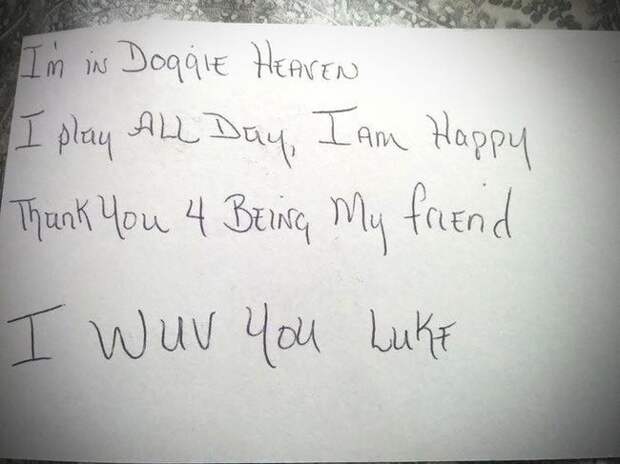 I'm in Doggie Heaven
I play All Day, I Am Happy
Thank You 4 Being My friend
I Wuv You Luke